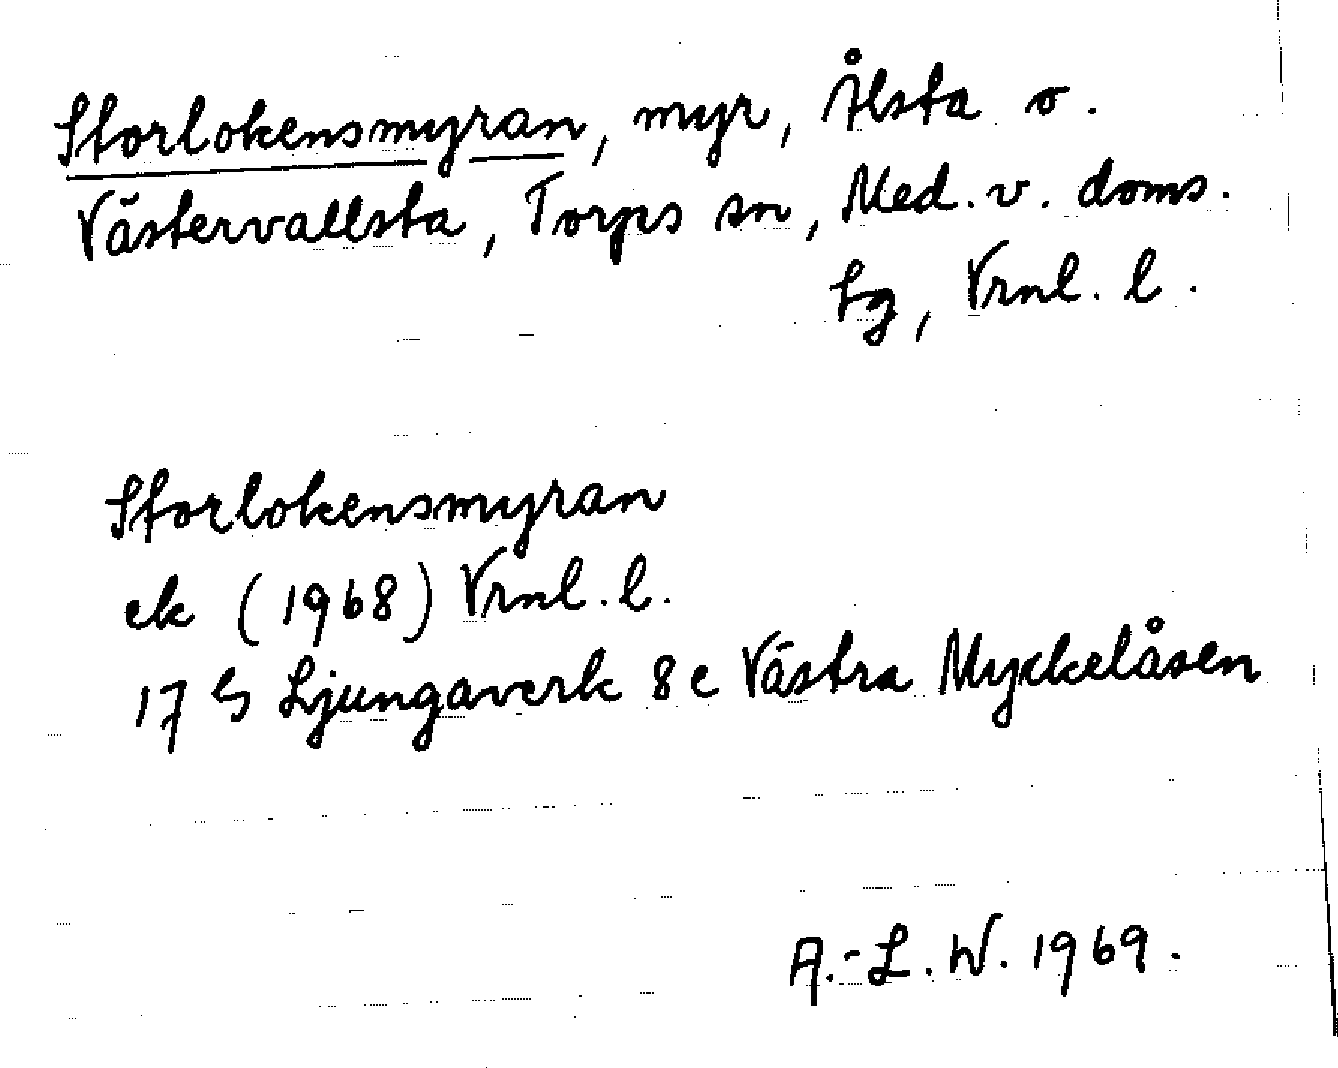 Storlokensmyran, myr, Ålsta o.
Västervallsta, Torps sn, Med. v. doms.
tg, Vrnl. l.
Storlokensmyran
ek (1968) Vrnl. l.
17 G Ljungaverk 8 c Västra Myckelåsen
A.-L. W. 1969.